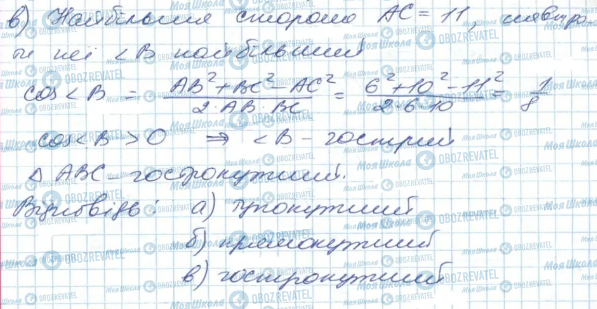 в) Найбільша сторона AC = 11, навпро
ти неї <B найбільший
cos<B = (AB²+BC²-AC²)/(2·AB·BC) = (6²+10²-11²)/(2·6·10) = 1/8
cos<B > 0 ⇒ <B - гострий
Δ ABC - гострокутний.
Відповідь: а) тупокутний
б) прямокутний
в) гострокутний